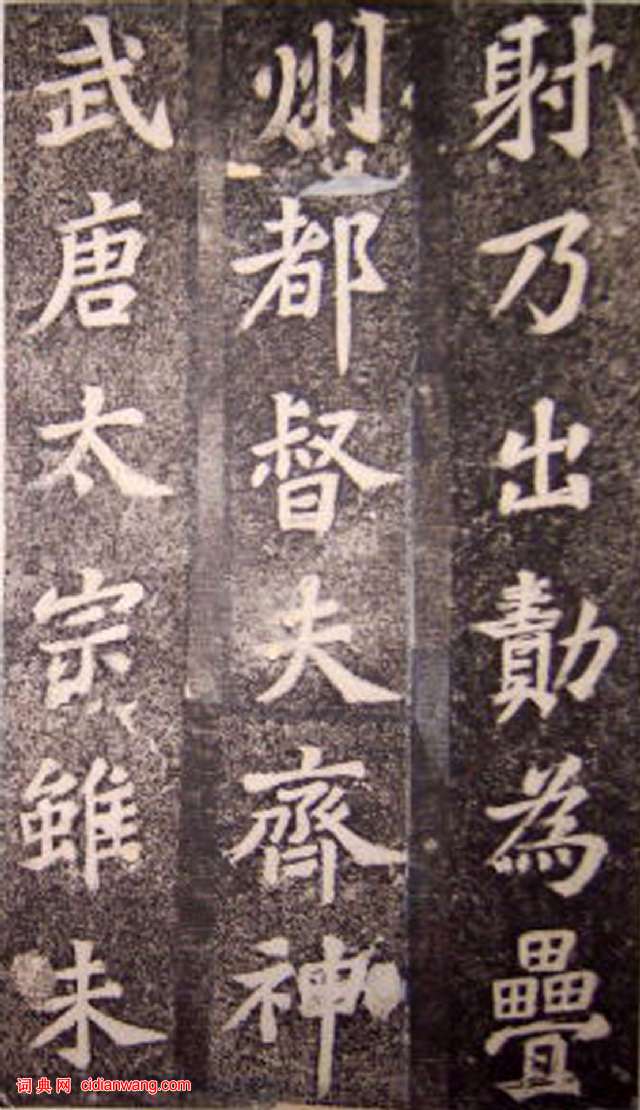 射乃出勣為疊
州都督夫齊神
武唐太宗雖未
词典网 cidianwang.com